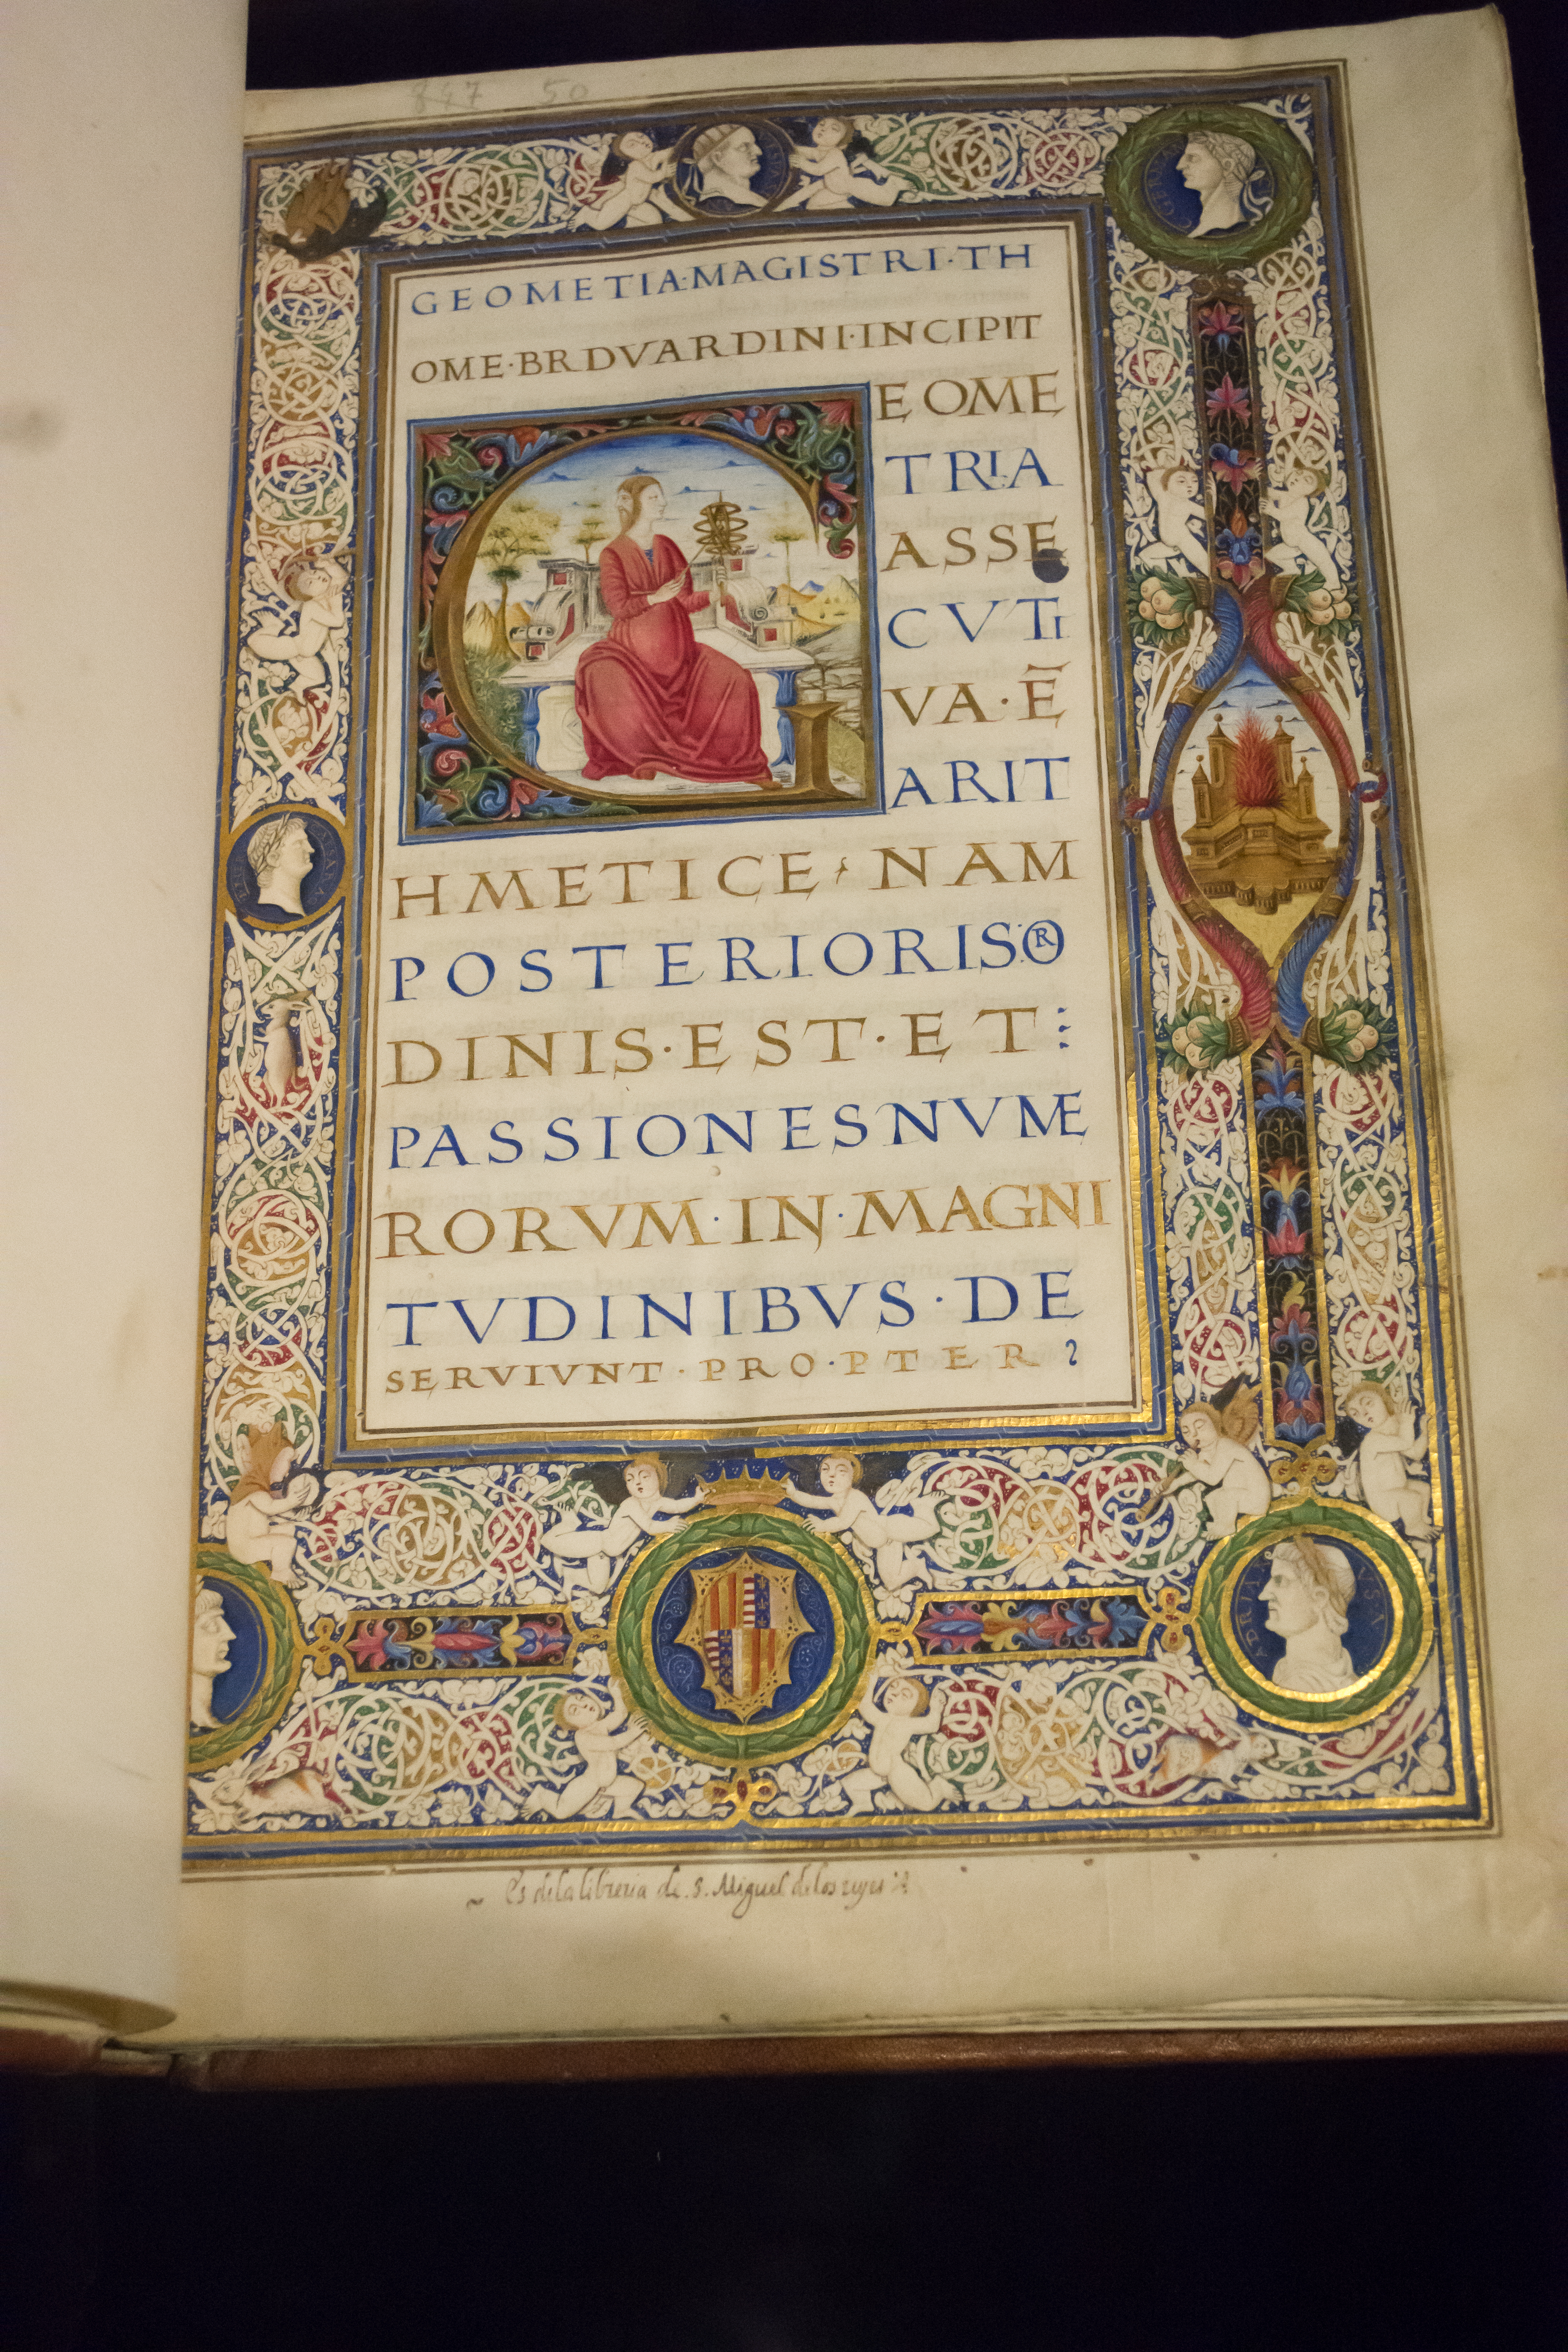 847 50
GEOMETIA·MAGISTRI·TH
OME·BRDVARDINI·INCIPIT
G EOME
TRIA
ASSE
CVTI
VA·Ē
ARIT
HMETICE NAM
POSTERIORIS OR
DINIS·EST·ET
PASSIONES NVME
RORVM·IN·MAGNI
TVDINIBVS·DE
SERVIVNT·PRO·PTER
Es de la libreria de .S. Miguel de los reyes